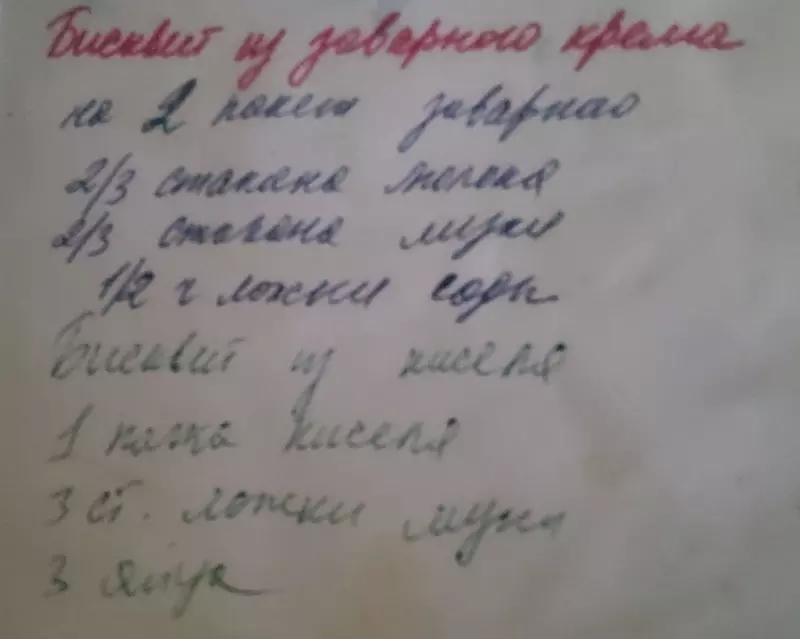 Бисквит из заварного крема
на 2 пакет заварная
2/3 стакана молока
2/3 стакана муки
1/2 ч ложки соды
Бисквит из киселя
1 пачка киселя
3 ст. ложки муки
3 яйца